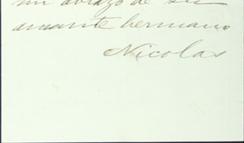 un abrazo de su
amante hermano
Nicolas